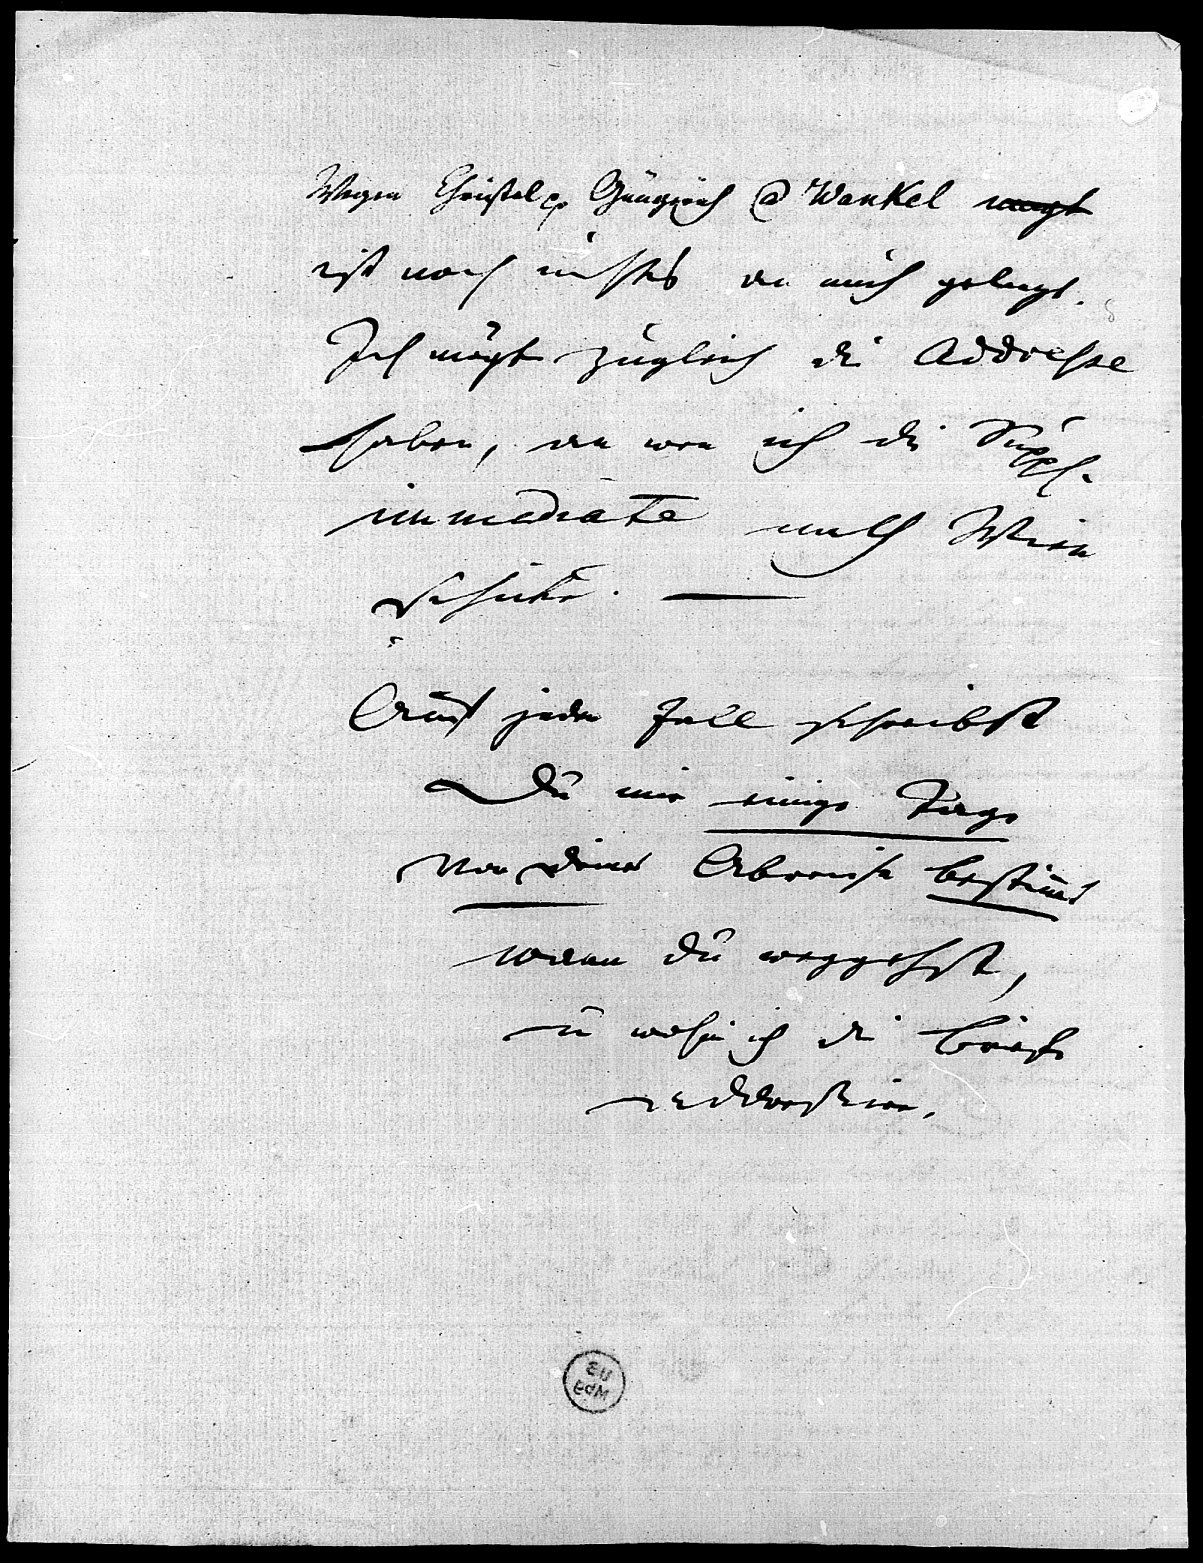 Wegen Christel Güngrich @ Wankel
ist noch nichts an mich gelangt.
Ich mögte zugleich die Addresse
haben, an wen ich die Suppl.
immediate nach Wien
schicke. —
Auf jeden Fall schreibst
Du mir einige Tage
vor deiner Abreise bestimmt
wann du weggehst,
u wohin ich die Briefe
addressire.